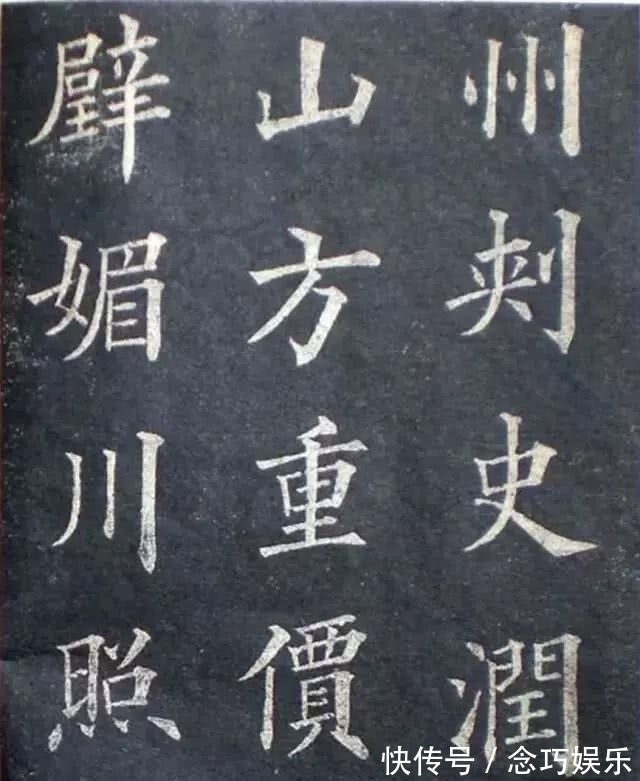 州刾史潤
山方重價
璧媚川照
快传号 / 念巧娱乐